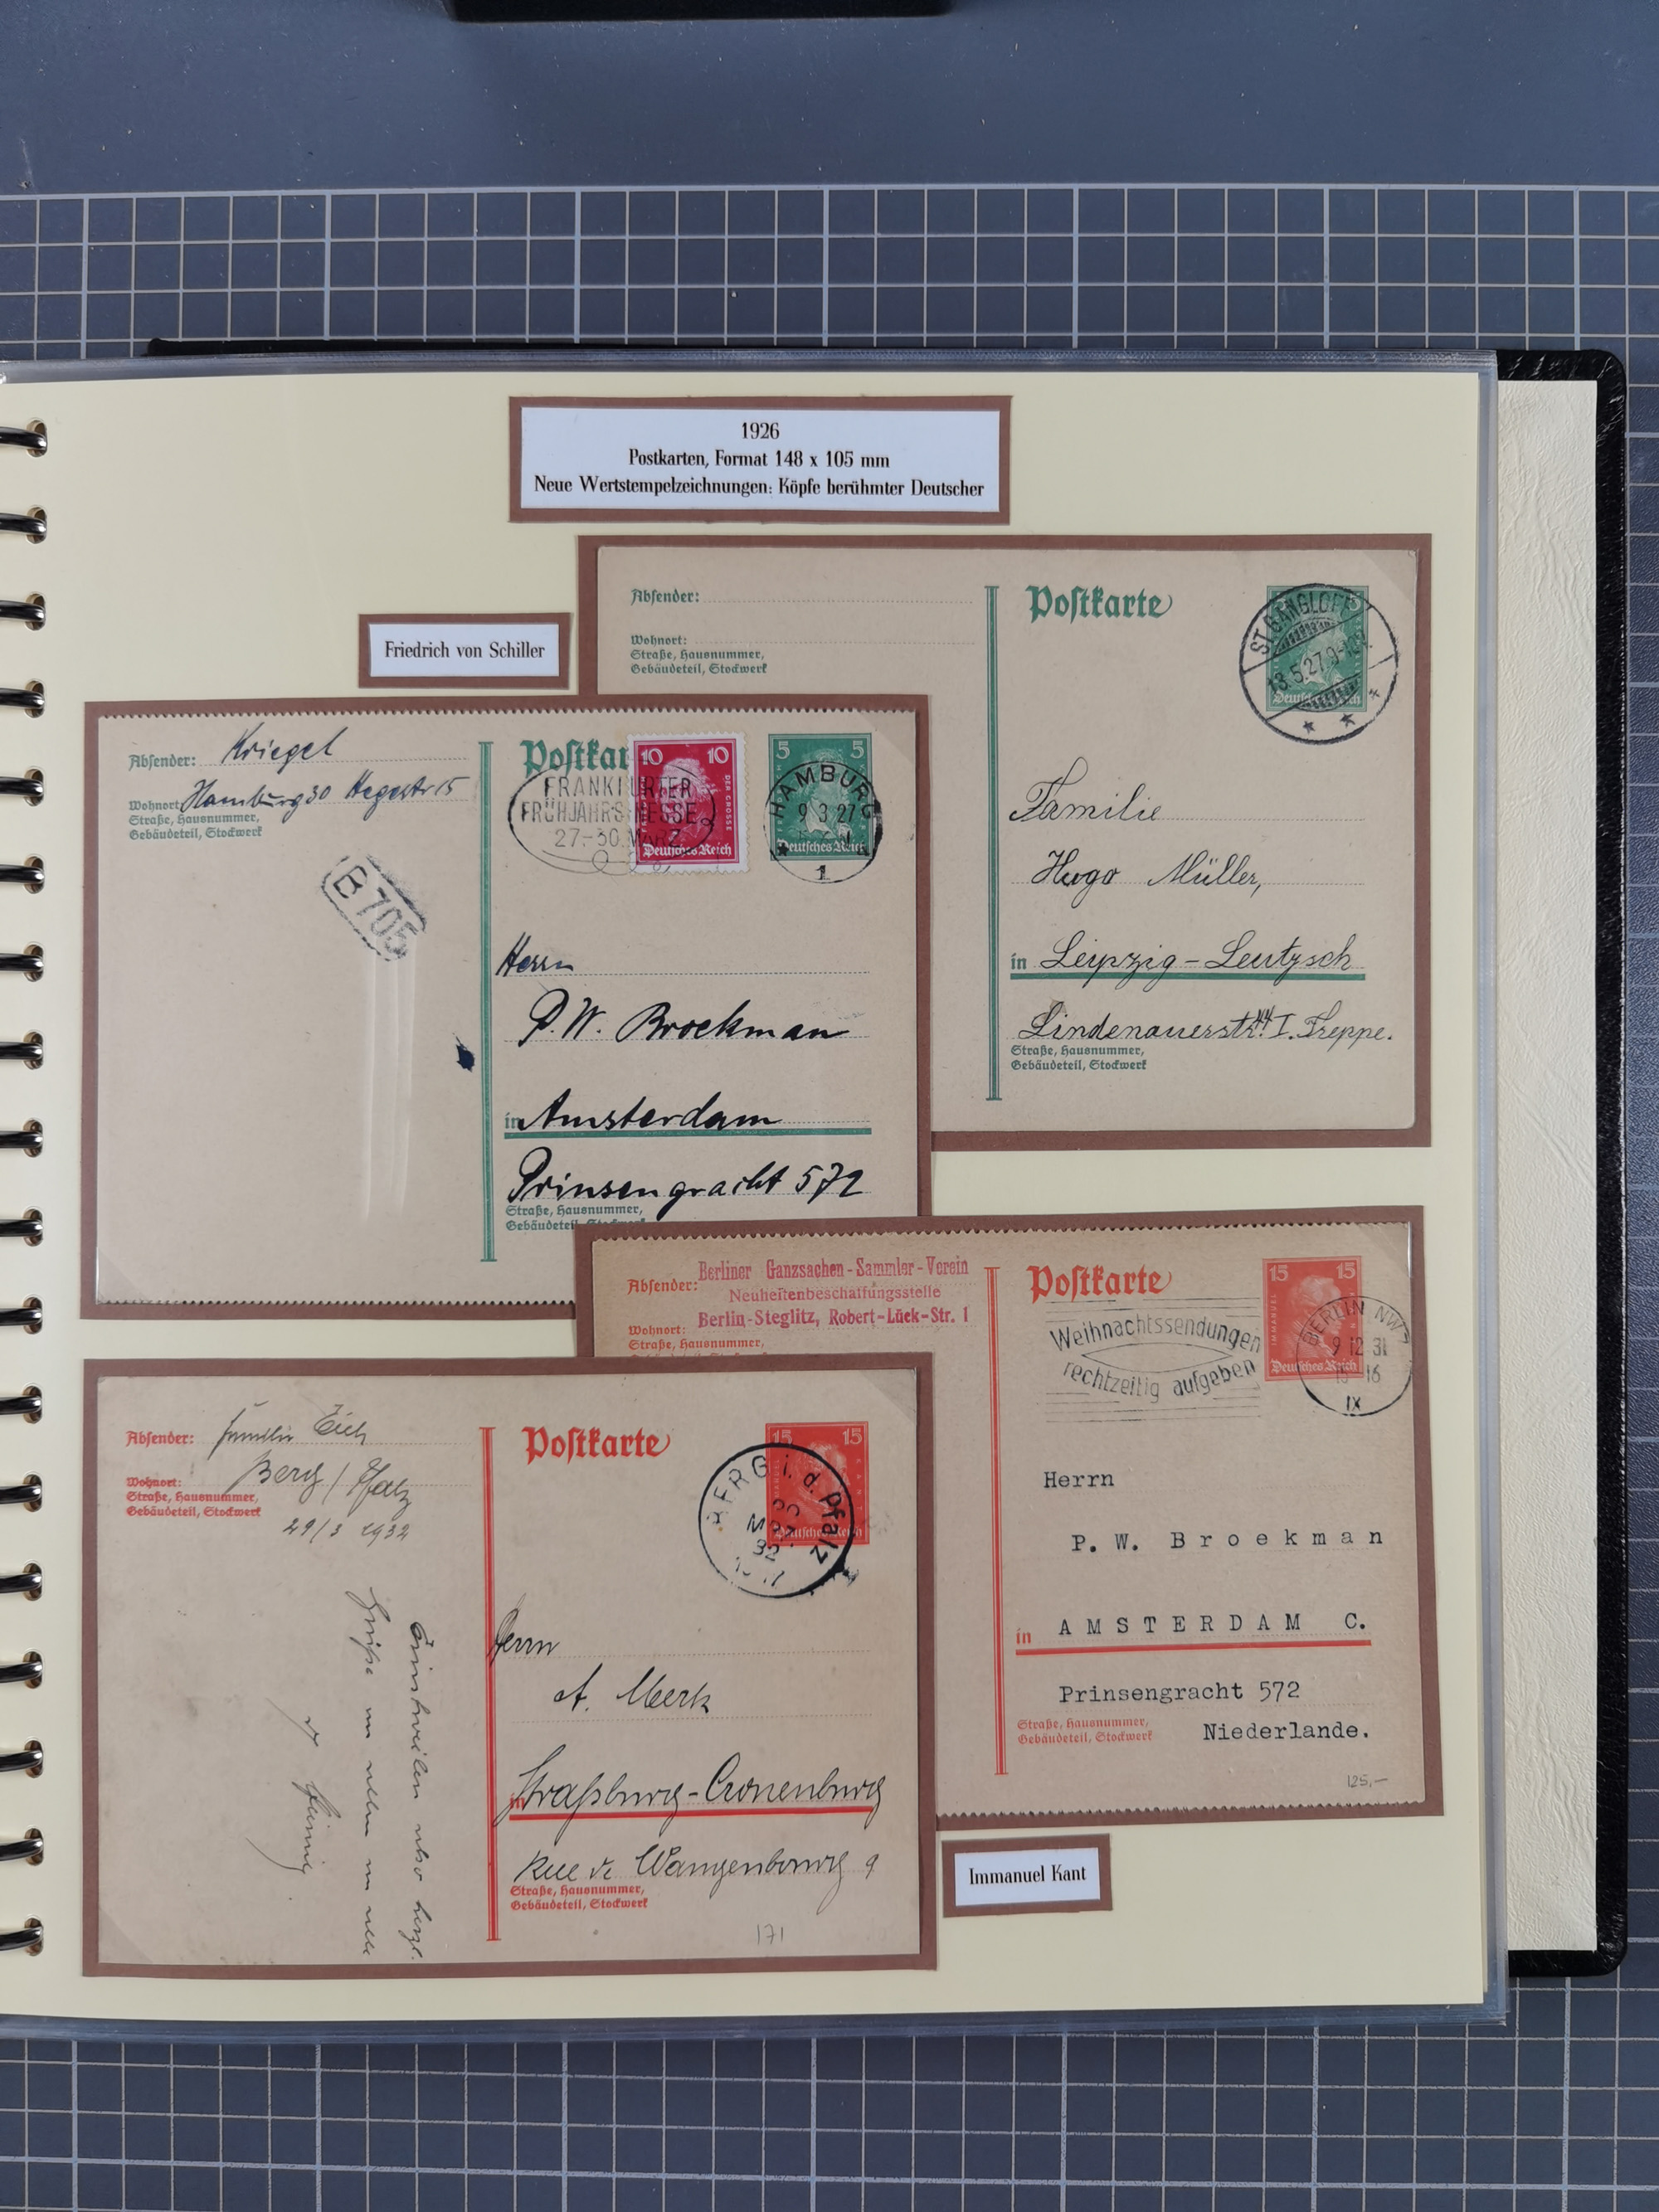 1926
Postkarten, Format 148 x 105 mm
Neue Wertstempelzeichnungen: Köpfe berühmter Deutscher
Friedrich von Schiller
Absender:
Wohnort:
Straße, Hausnummer,
Gebäudeteil, Stockwerk
Postkarte
ST. GANGLOFF
13.5.27.9-10V.
Deutsches Reich
Familie
Hugo Müller,
in Leipzig-Leutzsch
Lindenauerstr. 44 I. Treppe.
Straße, Hausnummer,
Gebäudeteil, Stockwerk
Absender: Kriegel
Wohnort Hamburg 30 Hegestr 15
Straße, Hausnummer,
Gebäudeteil, Stockwerk
B 705
Postkar
10 10
DER GROSSE
Deutsches Reich
FRANKFURTER
FRÜHJAHRS-MESSE
27.-30. MÄRZ
5 5
HAMBURG
9 3 27
1
Deutsches Reich
Herrn
P. W. Broekman
in Amsterdam
Prinsengracht 572
Straße, Hausnummer,
Gebäudeteil, Stockwerk
Absender: Berliner Ganzsachen-Sammler-Verein
Neuheitenbeschaffungsstelle
Berlin-Steglitz, Robert-Lück-Str. 1
Wohnort:
Straße, Hausnummer,
Postkarte
15 15
IMMANUEL
Deutsches Reich
Weihnachtssendungen
rechtzeitig aufgeben
BERLIN NW7
9 12 31
16
IX
Herrn
P. W. Broekman
in AMSTERDAM C.
Prinsengracht 572
Straße, Hausnummer,
Gebäudeteil, Stockwerk
Niederlande.
125,-
Absender: Familie Eich
Wohnort: Berg / Pfalz
Straße, Hausnummer,
Gebäudeteil, Stockwerk
29/3 1932
Einstweilen also herzl.
Grüße an allen in alle
Postkarte
15 15
IMMANUEL KANT
Deutsches Reich
BERG i. d. Pfalz
30
MRZ
32
Herrn
A. Merk
in Straßburg-Cronenburg
Rue de Wangenbourg 9
Straße, Hausnummer,
Gebäudeteil, Stockwerk
171
Immanuel Kant